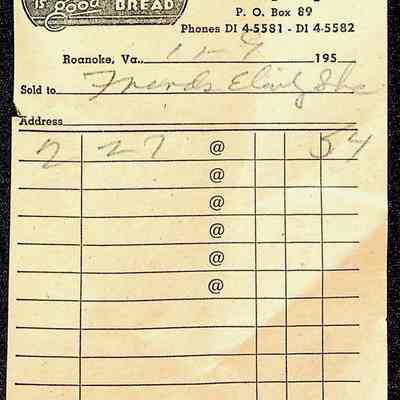 is good BREAD
P. O. Box 89
Phones DI 4-5581 - DI 4-5582
Roanoke, Va. 11-9 195
Sold to
Address
2 27 @ 54
@
@
@
@
@